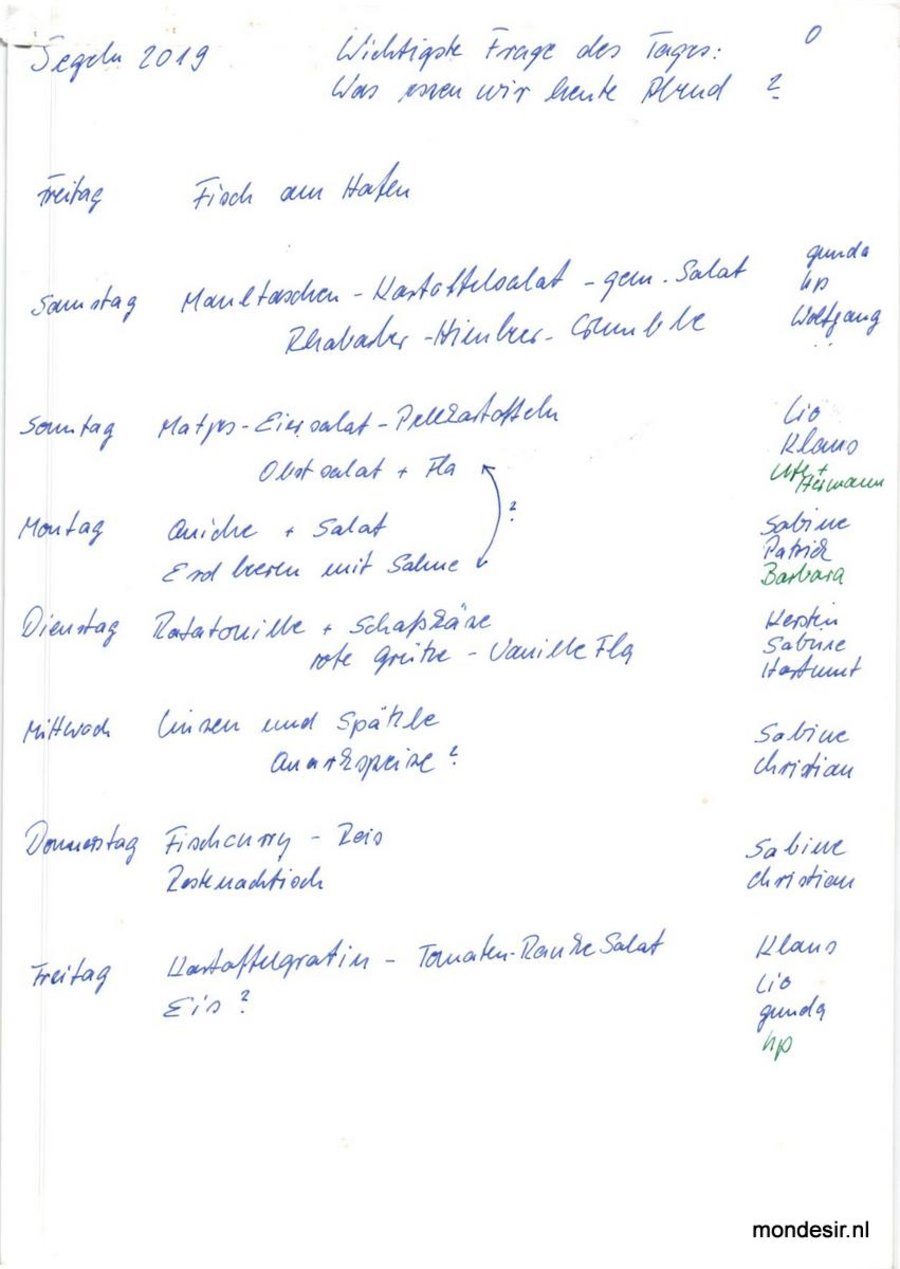 Segeln 2019
Wichtigste Frage des Tages: 0
Was essen wir heute Abend ?
Freitag Fisch am Hafen
Samstag Maultaschen - Kartoffelsalat - gem. Salat gunda
hp
Rhabarber - Himbeer - Crumble Wolfgang
Sonntag Matjes - Eiersalat - Pellkartoffeln Lio
Klaus
Obstsalat + Fla Ute + Hermann
?
Montag Quiche + Salat Sabine
Patrick
Erdbeeren mit Sahne Barbara
Dienstag Ratatouille + Schafskäse Kerstin
rote Grütze - Vanille Fla Sabine
Hartmut
Mittwoch Linsen und Spätzle Sabine
Quarkspeise ? Christian
Donnerstag Fischcurry - Reis Sabine
Restenachtisch Christian
Freitag Kartoffelgratin - Tomaten-Ranke Salat Klaus
Eis ? Lio
gunda
hp
mondesir.nl